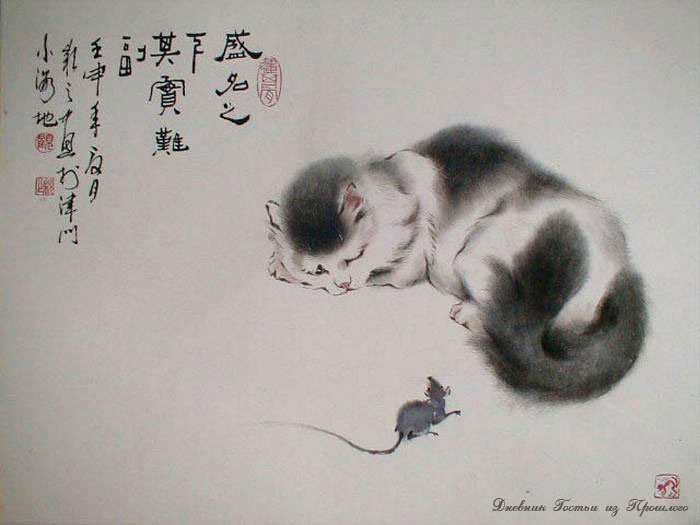 盛名之
下
其實難
副
壬申年夏月
於津門
小海地
Дневник Гостьи из Прошлого